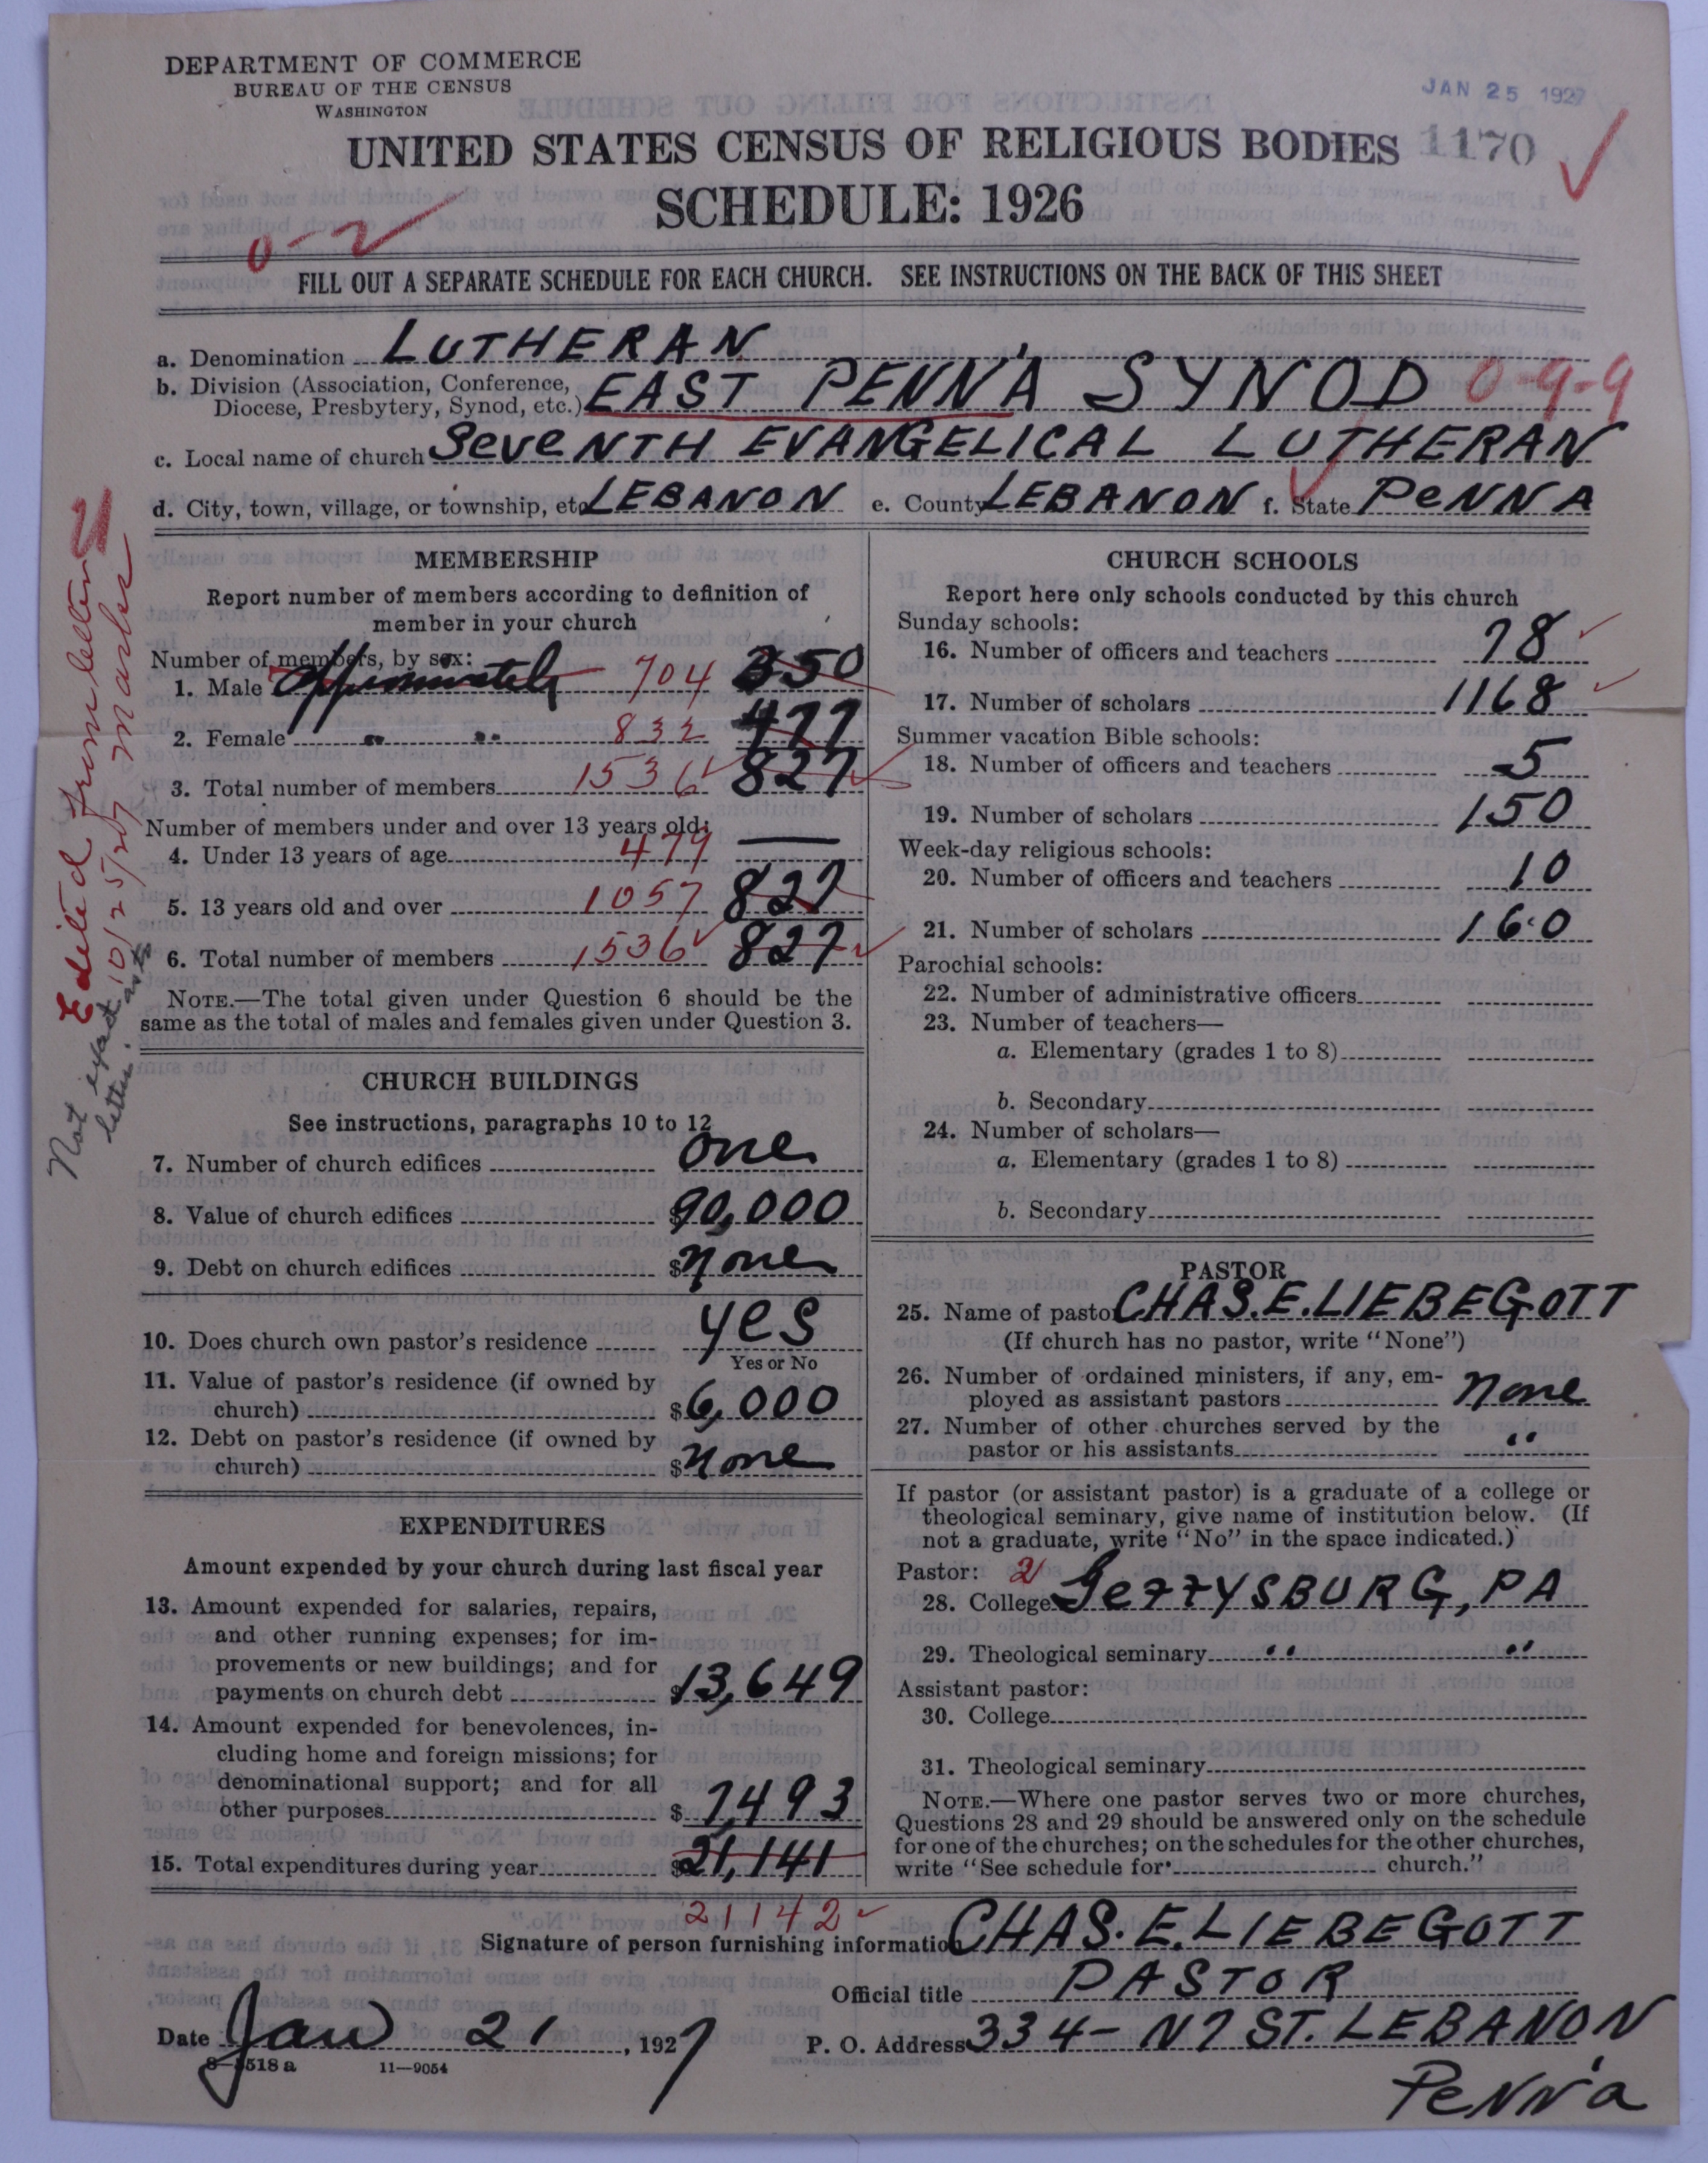 DEPARTMENT OF COMMERCE
BUREAU OF THE CENSUS
WASHINGTON
JAN 25 1927
UNITED STATES CENSUS OF RELIGIOUS BODIES 1170
SCHEDULE: 1926
0-2
FILL OUT A SEPARATE SCHEDULE FOR EACH CHURCH. SEE INSTRUCTIONS ON THE BACK OF THIS SHEET
a. Denomination LUTHERAN
b. Division (Association, Conference, Diocese, Presbytery, Synod, etc.) EAST PENN'A SYNOD 0-9-9
c. Local name of church SeveNTH EVANGELICAL LUTHERAN
d. City, town, village, or township, etc. LEBANON e. County LEBANON f. State PeNNA
Edited from letter
10/25/27 Marks
Not exact as to
letter.
MEMBERSHIP
Report number of members according to definition of
member in your church
Number of members, by sex:
1. Male Approximately 704 350
2. Female " " 832 477
3. Total number of members 1536 827
Number of members under and over 13 years old:
4. Under 13 years of age 479 —
5. 13 years old and over 1057 827
6. Total number of members 1536 827
NOTE.—The total given under Question 6 should be the
same as the total of males and females given under Question 3.
CHURCH BUILDINGS
See instructions, paragraphs 10 to 12
7. Number of church edifices one
8. Value of church edifices $90,000
9. Debt on church edifices $none
10. Does church own pastor's residence yes
Yes or No
11. Value of pastor's residence (if owned by
church) $6,000
12. Debt on pastor's residence (if owned by
church) $none
EXPENDITURES
Amount expended by your church during last fiscal year
13. Amount expended for salaries, repairs,
and other running expenses; for im-
provements or new buildings; and for
payments on church debt $13,649
14. Amount expended for benevolences, in-
cluding home and foreign missions; for
denominational support; and for all
other purposes $7,493
15. Total expenditures during year $21,141
21142
CHURCH SCHOOLS
Report here only schools conducted by this church
Sunday schools:
16. Number of officers and teachers 78
17. Number of scholars 1168
Summer vacation Bible schools:
18. Number of officers and teachers 5
19. Number of scholars 150
Week-day religious schools:
20. Number of officers and teachers 10
21. Number of scholars 160
Parochial schools:
22. Number of administrative officers
23. Number of teachers—
a. Elementary (grades 1 to 8)
b. Secondary
24. Number of scholars—
a. Elementary (grades 1 to 8)
b. Secondary
PASTOR
25. Name of pastor CHAS. E. LIEBEGOTT
(If church has no pastor, write "None")
26. Number of ordained ministers, if any, em-
ployed as assistant pastors none
27. Number of other churches served by the
pastor or his assistants "
If pastor (or assistant pastor) is a graduate of a college or
theological seminary, give name of institution below. (If
not a graduate, write "No" in the space indicated.)
Pastor: 2
28. College GeTTYSBURG, PA
29. Theological seminary " "
Assistant pastor:
30. College
31. Theological seminary
NOTE.—Where one pastor serves two or more churches,
Questions 28 and 29 should be answered only on the schedule
for one of the churches; on the schedules for the other churches,
write "See schedule for church."
Signature of person furnishing information CHAS. E. LIEBEGOTT
Official title PASTOR
Date Jan 21, 1927 P. O. Address 334-N 7 ST. LEBANON
PeNN'a
8—518a 11—9054